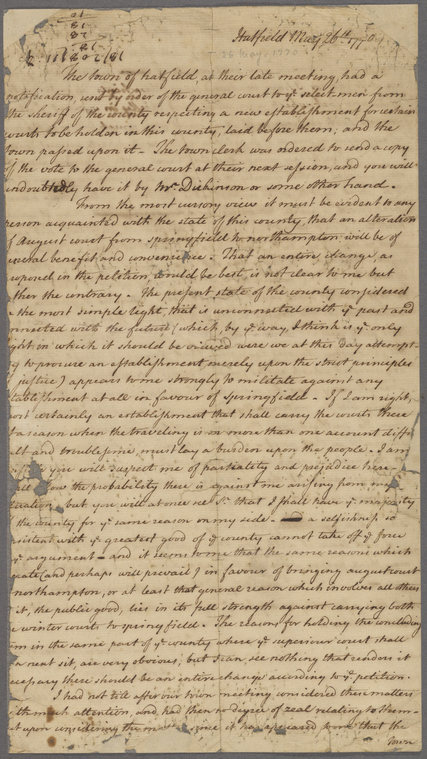 Hatfield May 26th 1770
The town of hatfield, at their late meeting, had a
notification, sent by order of the general court to ye select men from
the Sheriff of the county respecting a new establishment for certain
courts to be holden in this county, laid before them, and the
town passed upon it - The town clerk was ordered to send a copy
of the vote to the general court at their next session, and you will
undoubtedly have it by Mr. Dickinson or some other hand.
From the most cursory view it must be evident to any
person acquainted with the state of this county, that an alteration
of August court from springfield to northampton will be of
general benefit and convenience. That an entire change, as
proposed in the petition, would be best, is not clear to me but
rather the contrary. The present state of the county considered
in the most simple light, that is unconnected with ye past and
connected with the future (which, by ye way, I think is ye only
light in which it should be viewed were we at this day attempt-
ing to procure an establishment merely upon the strict principles
of justice) appears to me strongly to militate against any
establishment at all in favour of Springfield. If I am right,
most certainly an establishment that shall carry the courts there
at a season when the traveling is on more than one account diffi-
cult and troublesome, must lay a burden upon the people. I am
you will suspect me of partiality and prejudice here
allow the probability there is against me arising from my
situation, but you will at once see Sr. that I shall have ye majority
of the county for ye same reason on my side - a selfishness so
consistent with ye greatest good of ye county cannot take off ye force
of ye argument - and it seems to me that the same reasons which
operate (and perhaps will prevail) in favour of bringing august court
to northampton, or at least that general reason which involves all others
in it, the public good, lies in its full strength against carrying both
the winter courts to springfield. The reasons for holding the concluding
term in the same part of ye county where ye superiour court shall
next sit, are very obvious; but I can see nothing that renders it
necessary there should be an entire change according to ye petition.
I had not till after our town meeting considered these matters
with much attention, and had then no degree of zeal relating to them -
but upon considering the since it has appeared to me that the
town